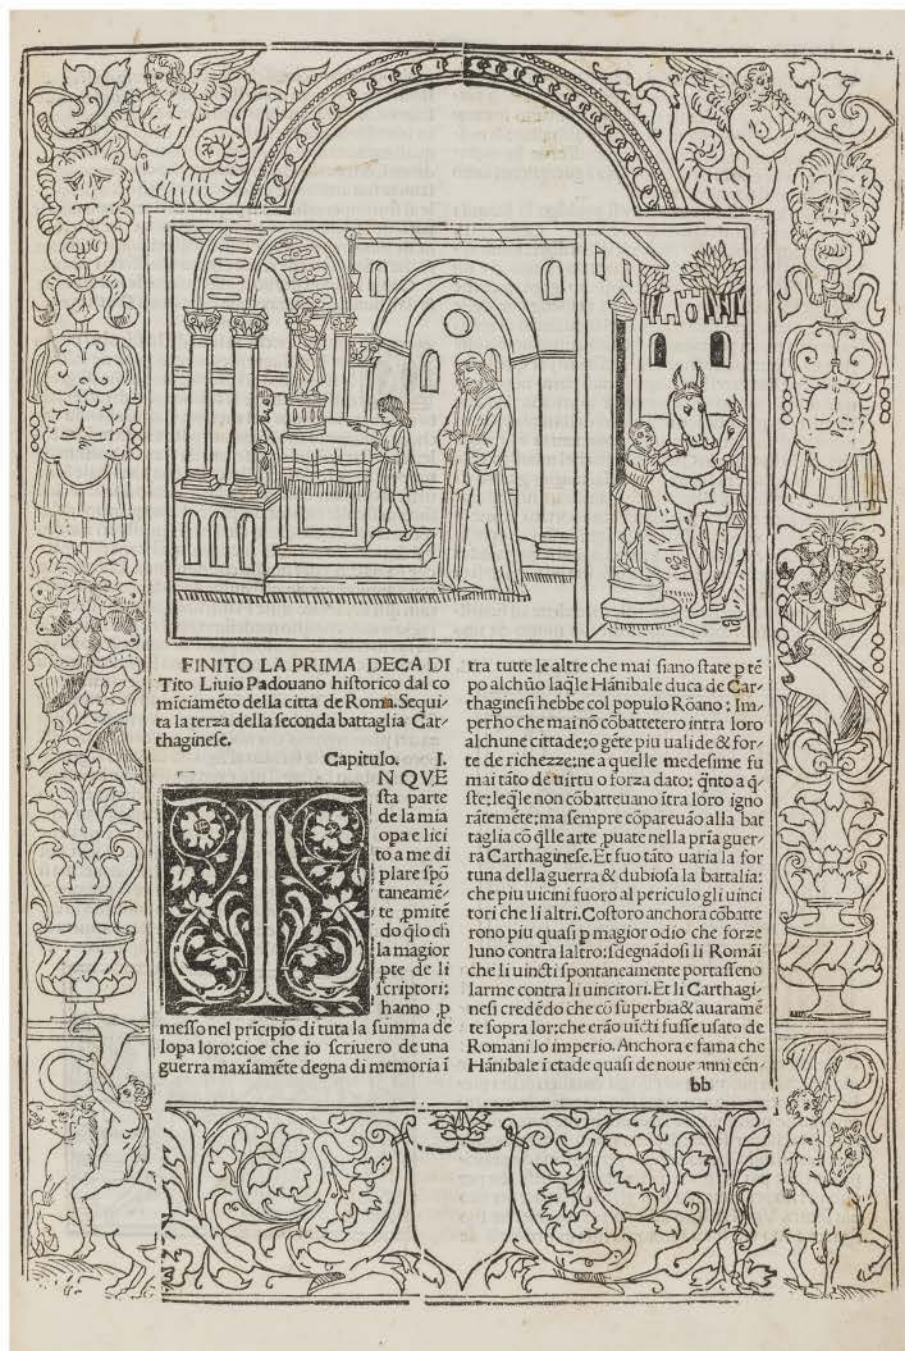 FINITO LA PRIMA DECA DI
Tito Liuio Padouano hiſtorico dal co
mīciamēto della citta de Roma. Sequi-
ta la terza della ſeconda battaglia Car-
thagineſe.
Capitulo. I.
IN QVE
ſta parte
de la mia
opa e lici
to a me di
plare ſpō
taneamē-
te ꝓmitē
do q̄lo ch̄
la magior
pte de li
ſcriptori:
hanno ꝓ
meſſo nel prīcipio di tuta la ſumma de
lopa loro: cioe che io ſcriuero de una
guerra maxīamēte degna di memoria ī
tra tutte le altre che mai ſiano ſtate p tē
po alchūo laq̄le Hānibale duca de Car-
thagineſi hebbe col populo Rōano: Im-
perho che mai nō cōbattetero intra loro
alchune cittade: o gēte piu ualide & for-
te de richezze: ne a quelle medeſime fu
mai tāto de uirtu o forza dato: q̄nto a q̄-
ſte: leq̄le non cōbatteuano ītra loro igno
rātemēte: ma ſempre cōpareuāo alla bat
taglia cō q̄lle arte ꝓuate nella pria guer-
ra Carthagineſe. Et fuo tāto uaria la for
tuna della guerra & dubioſa la battalia:
che piu uicini fuoro al periculo gli uinci
tori che li altri. Coſtoro anchora cōbatte
rono piu quaſi p magior odio che forze
luno contra laltro: ſdegnādoſi li Romāi
che li uincti ſpontaneamente portaſſeno
larme contra li uincitori. Et li Carthagi-
neſi credēdo che cō ſuperbia & auaramē
te ſopra lor: che erāo uīcti fuſſe uſato de
Romani lo imperio. Anchora e fama che
Hānibale ī etade quaſi de noue anni eēn-
bb